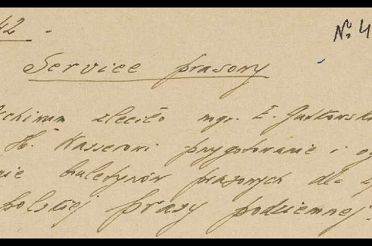 42.
№ 4
Service prasowy
Archiwum zleciło mgr. E. Gutkowsk
H. Wasserowi przygotowanie i
nie biuletynów prasowych dla
polskiej prasy podziemnej.